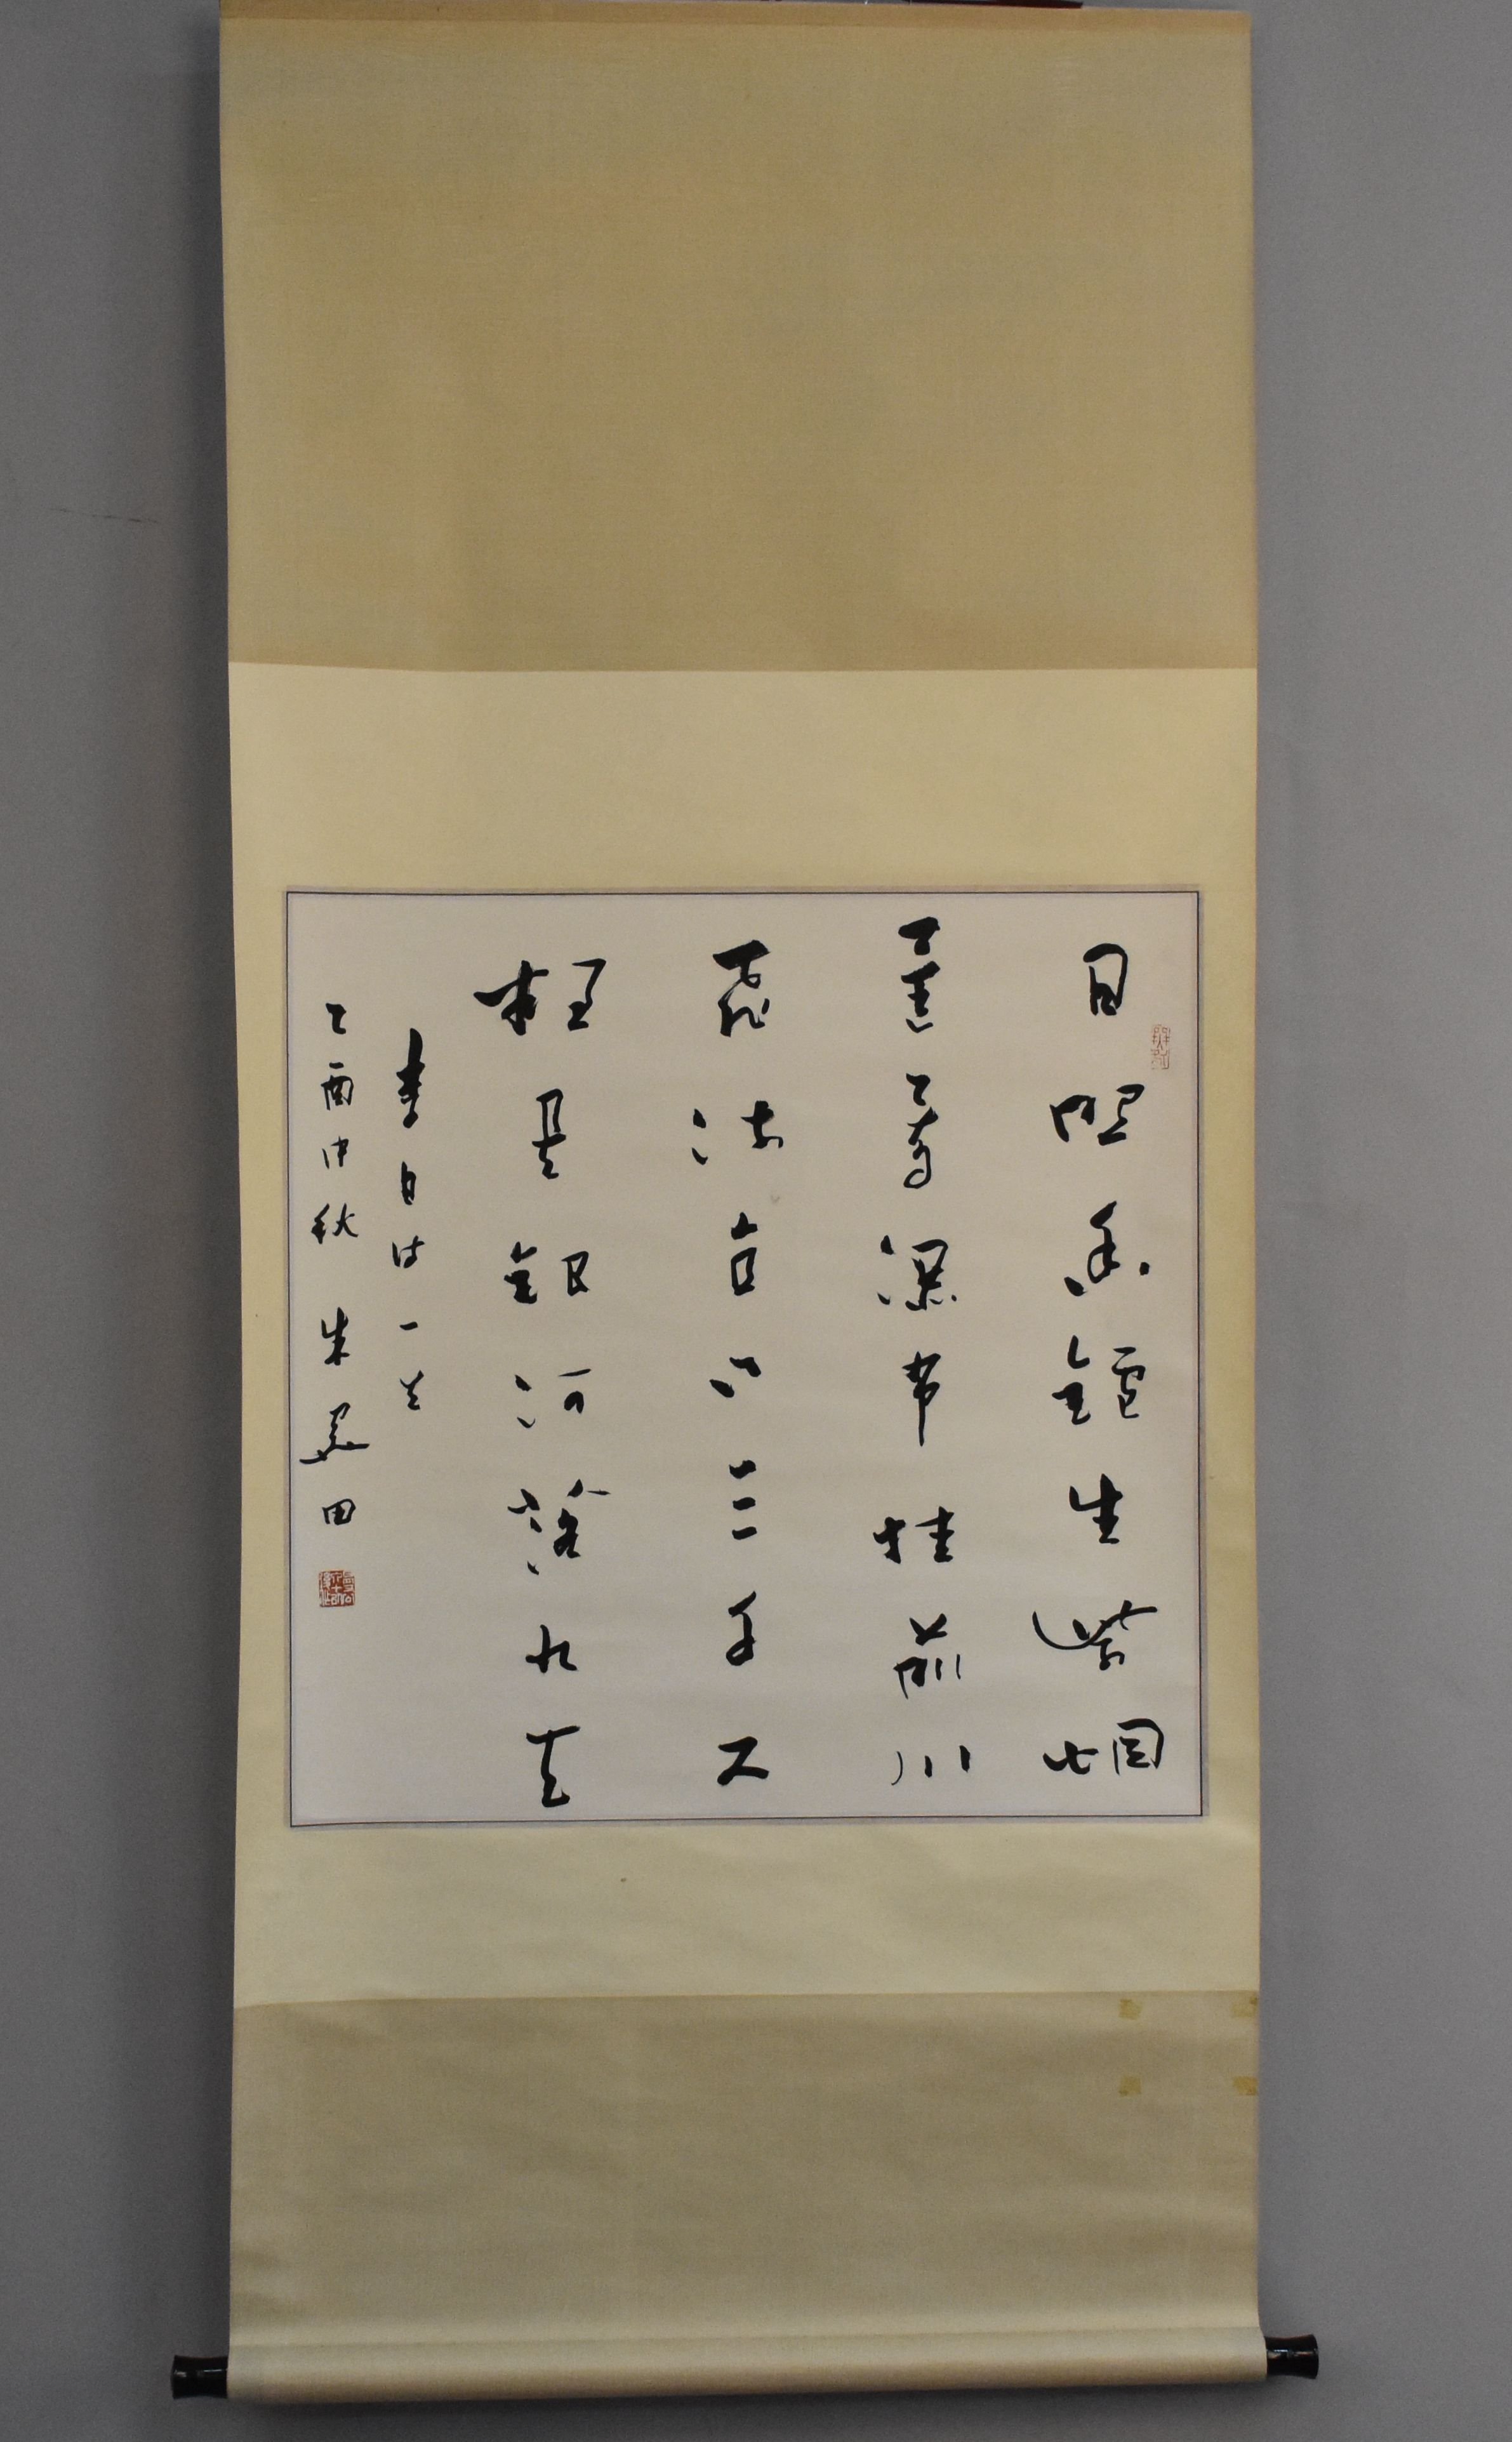 日照香鑪生紫烟
遥看瀑布挂前川
飛流直下三千尺
疑是銀河落九天
李白诗一首
乙酉中秋 朱 田